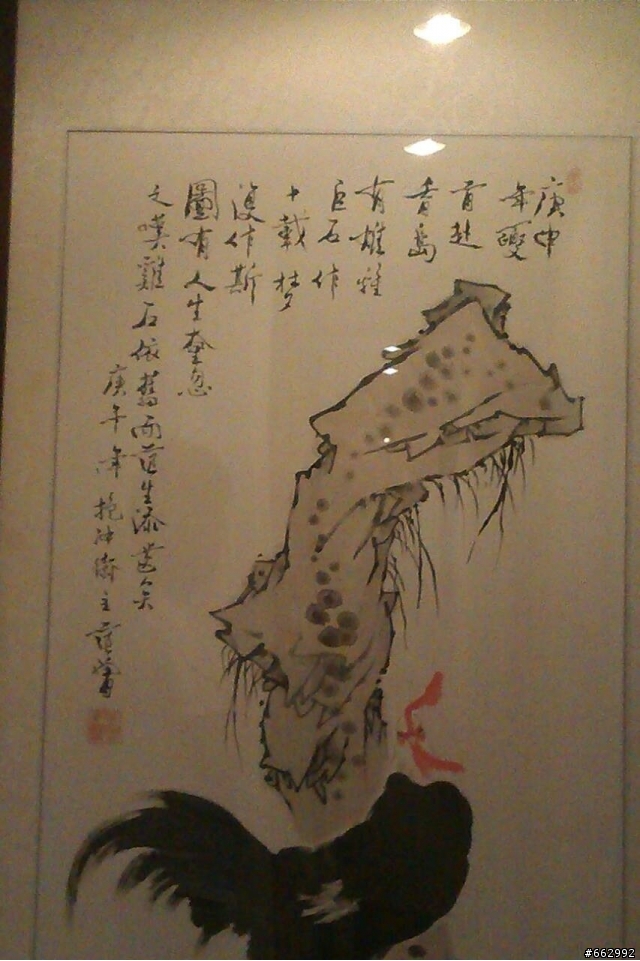 庚申
年夏
首赴
香島
有雄雞
巨石作
十載梦
復作斯
圖有人生奄忽
之嘆雞石依舊而范生添墨矣
庚午年抱冲齋主范曾
#662992